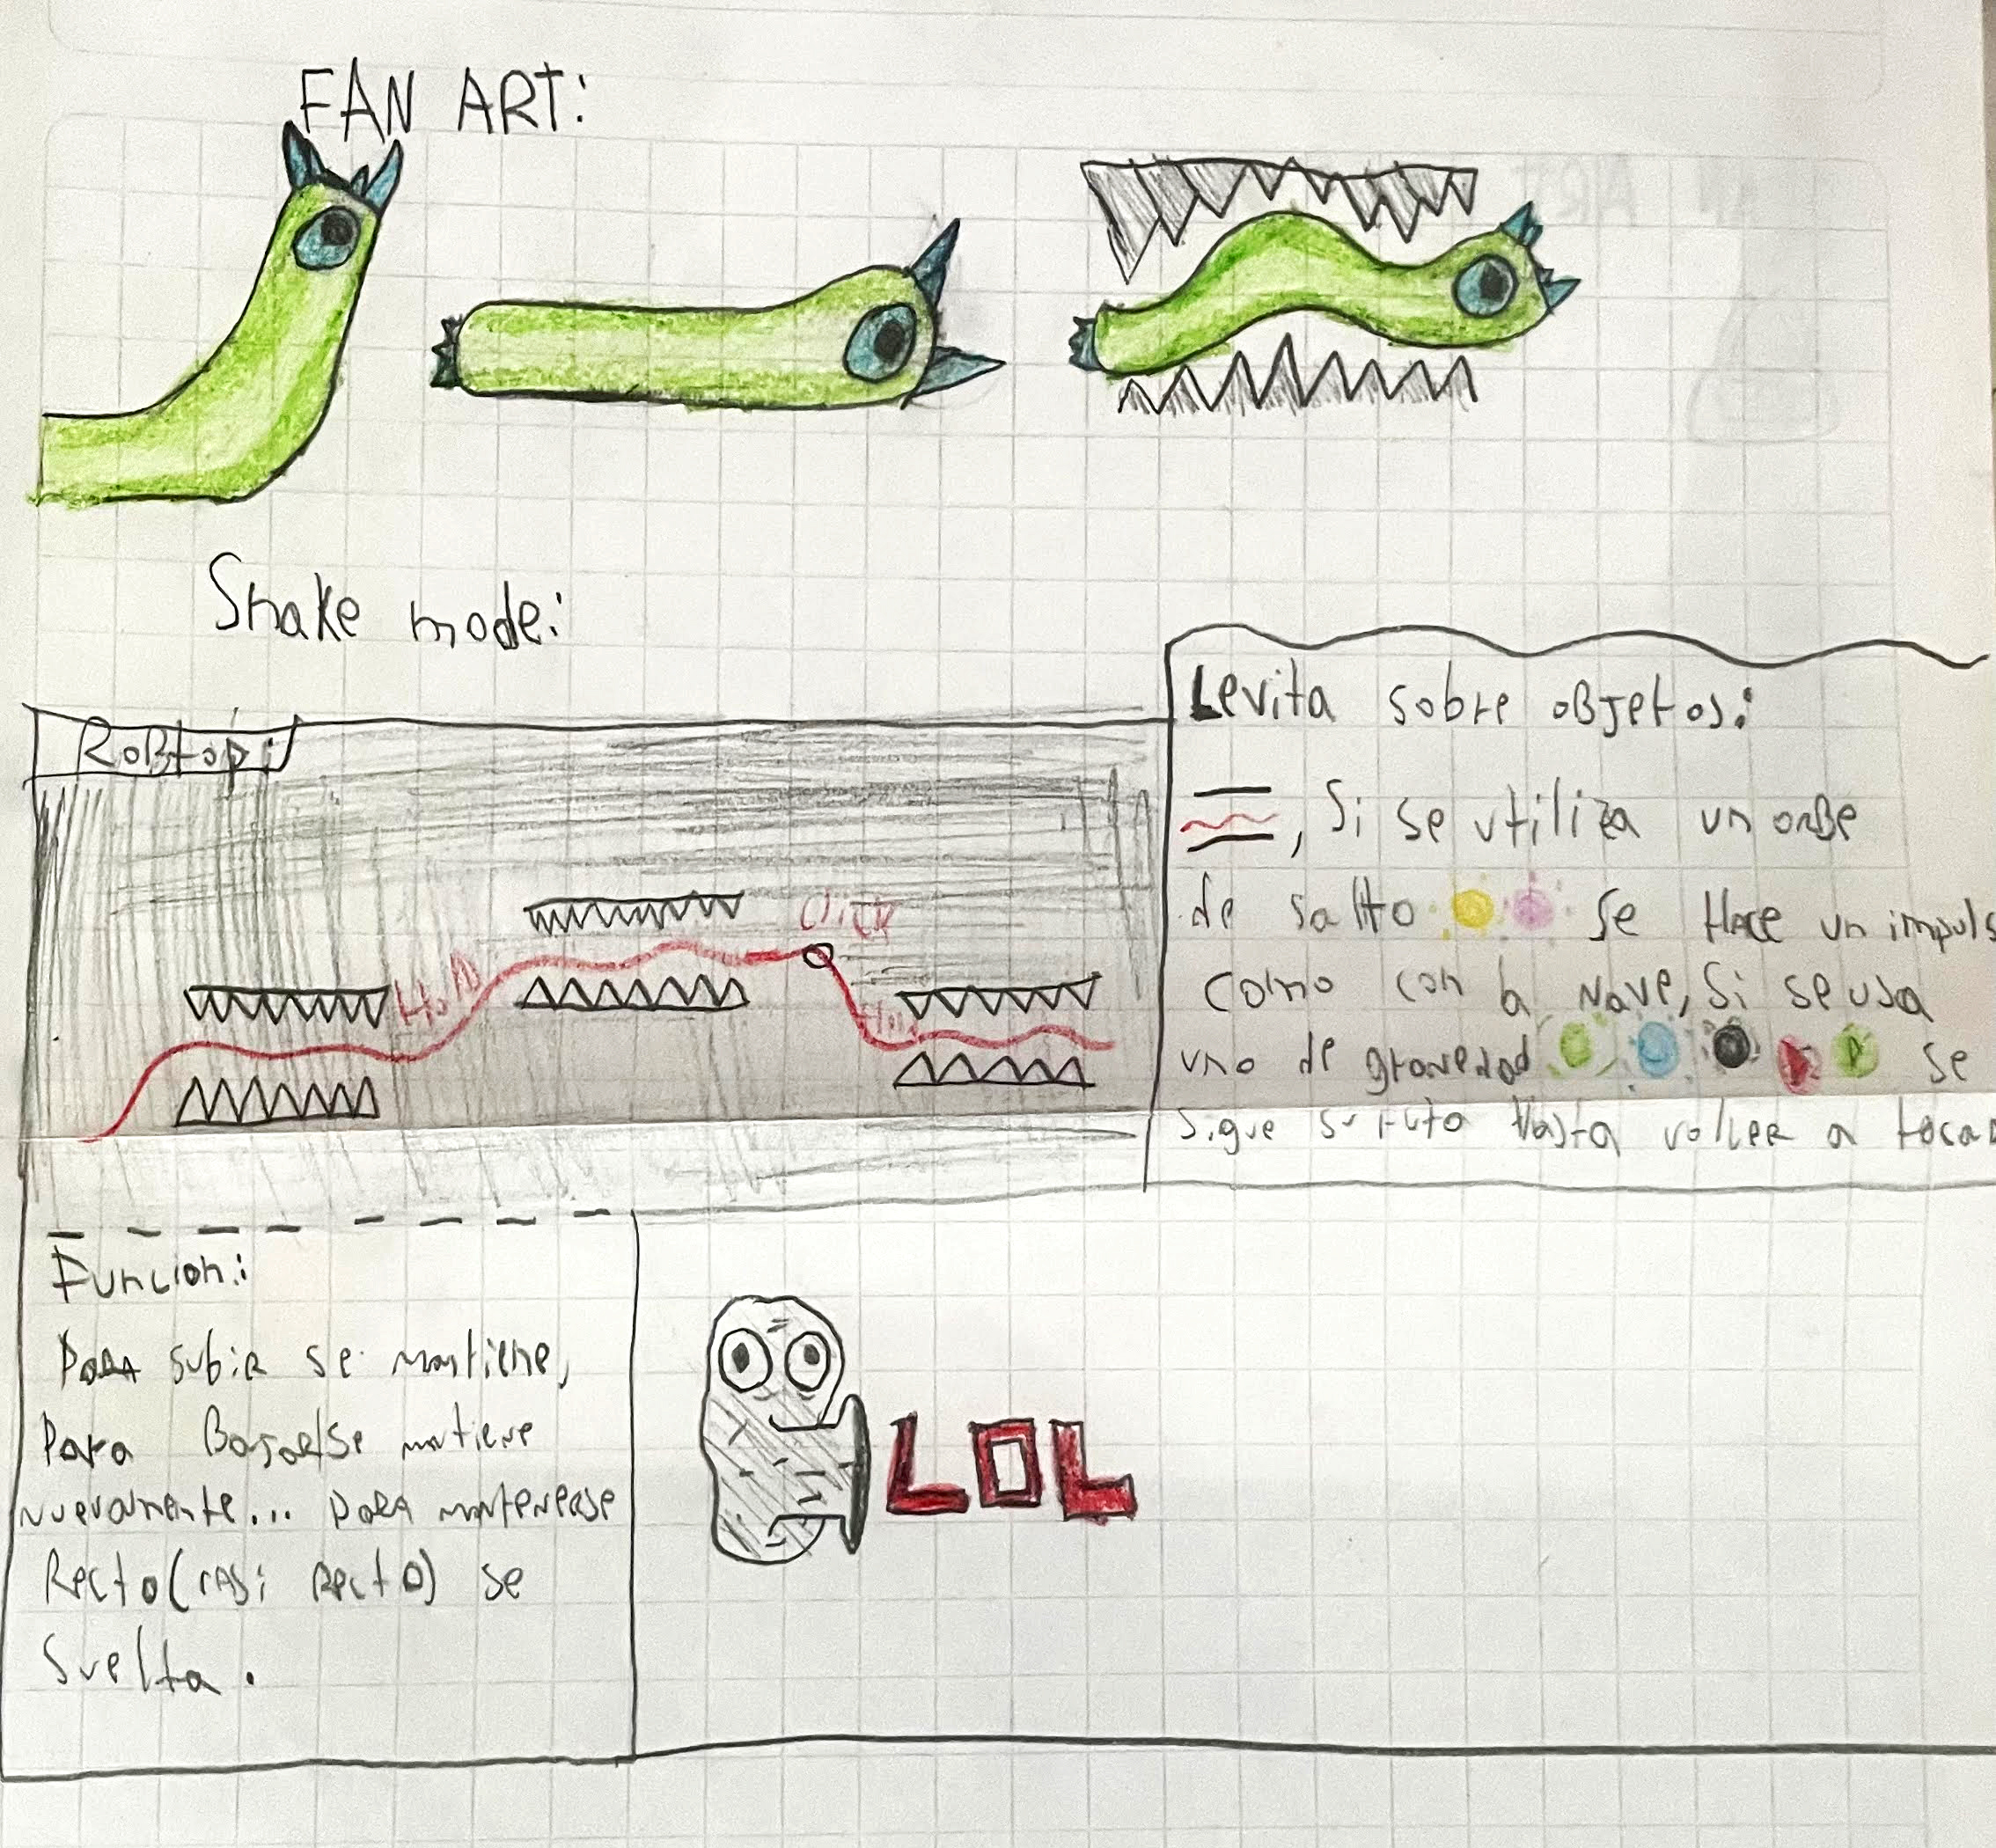 FAN ART:
Snake mode:
RoBtop:
HolD
Click
Levita sobre oBJetos:
, Si se utiliza un orBe
de salto se Hace un impuls
como con la Nave, Si se usa
uno de gravedad se
sigue su ruta Hasta volveR a tocaR
Funcion:
PaRA subiR se mantiene,
Para BajaR se mantiene
nuevamente... paRA mantenerse
Recto (casi Recto) se
Suelta.
LOL